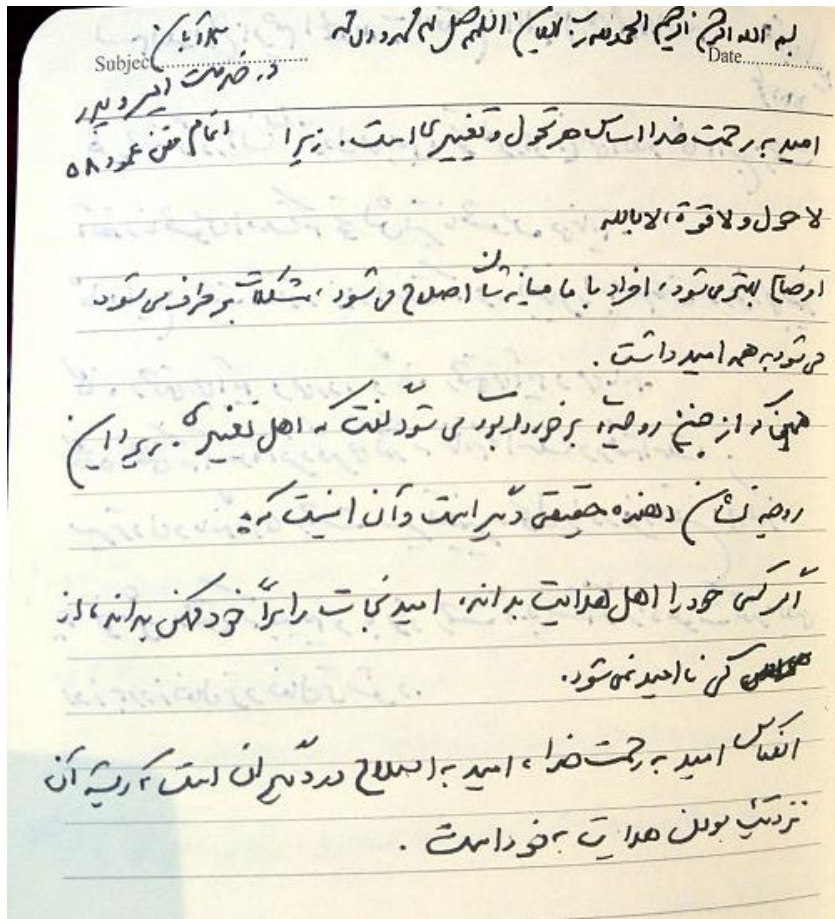 بسم الله الرحمن الرحیم الحمدلله رب العالمین اللهم صل علی محمد و آل محمد
۱۳ آبان
Subject
Date
در خدمت
امید به رحمت خدا اساس هر تحول و تغییری است. زیرا
اتمام متن عمود ۵۸
لا حول و لا قوة الا بالله
اوضاع بهتر می‌شود، افراد با ما میانه‌شان اصلاح می‌شود، مشکلات برطرف می‌شود
می‌شود به همه امید داشت.
همین که از چنین روحیه‌ای برخوردار بود می‌شود گفت که اهل تغییری. زیرا این
روحیه نشان دهنده حقیقتی دیگر است و آن اینست که:
اگر کسی خود را اهل هدایت بداند، امید نجات را برای خود ممکن بداند، از
کسی ناامید نمی‌شود.
انعکاس امید به رحمت خدا، امید به اصلاح در دیگران است که ریشه آن
نزدیک بودن هدایت به خود است.